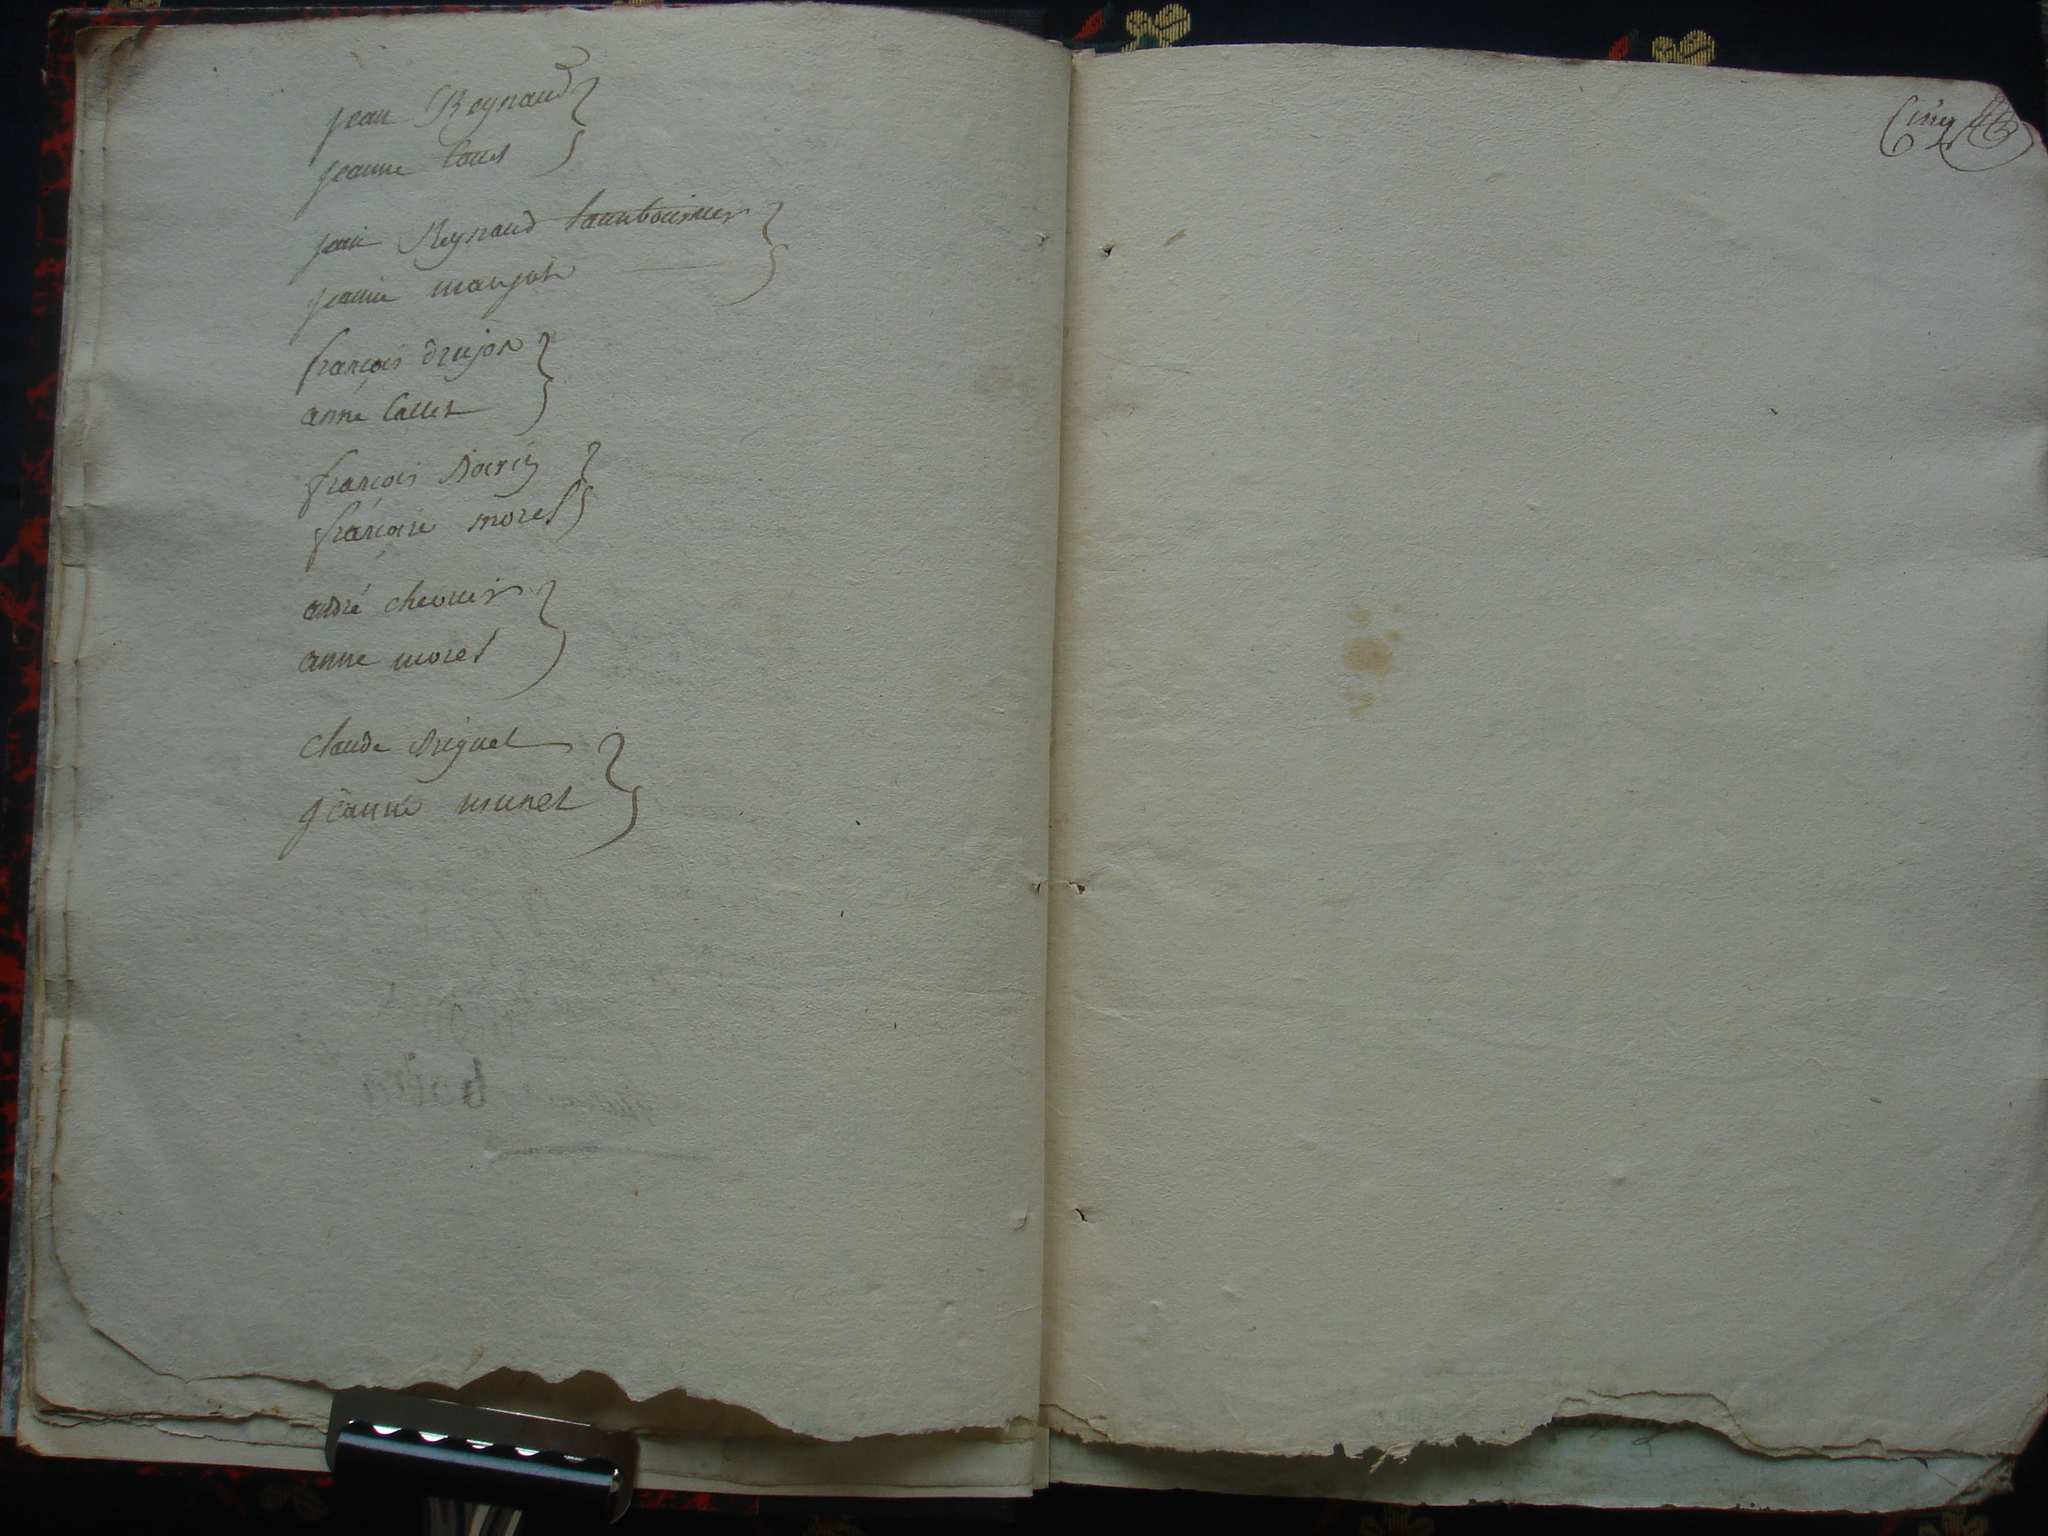 jean Reynaud
jeanne
jean Reynaud tambourner
jeanne manjot
françois drujon
anne Callet
françois
françoise morel
andré chevrier
anne morel
claude driguet
jeanne munet
Cinq